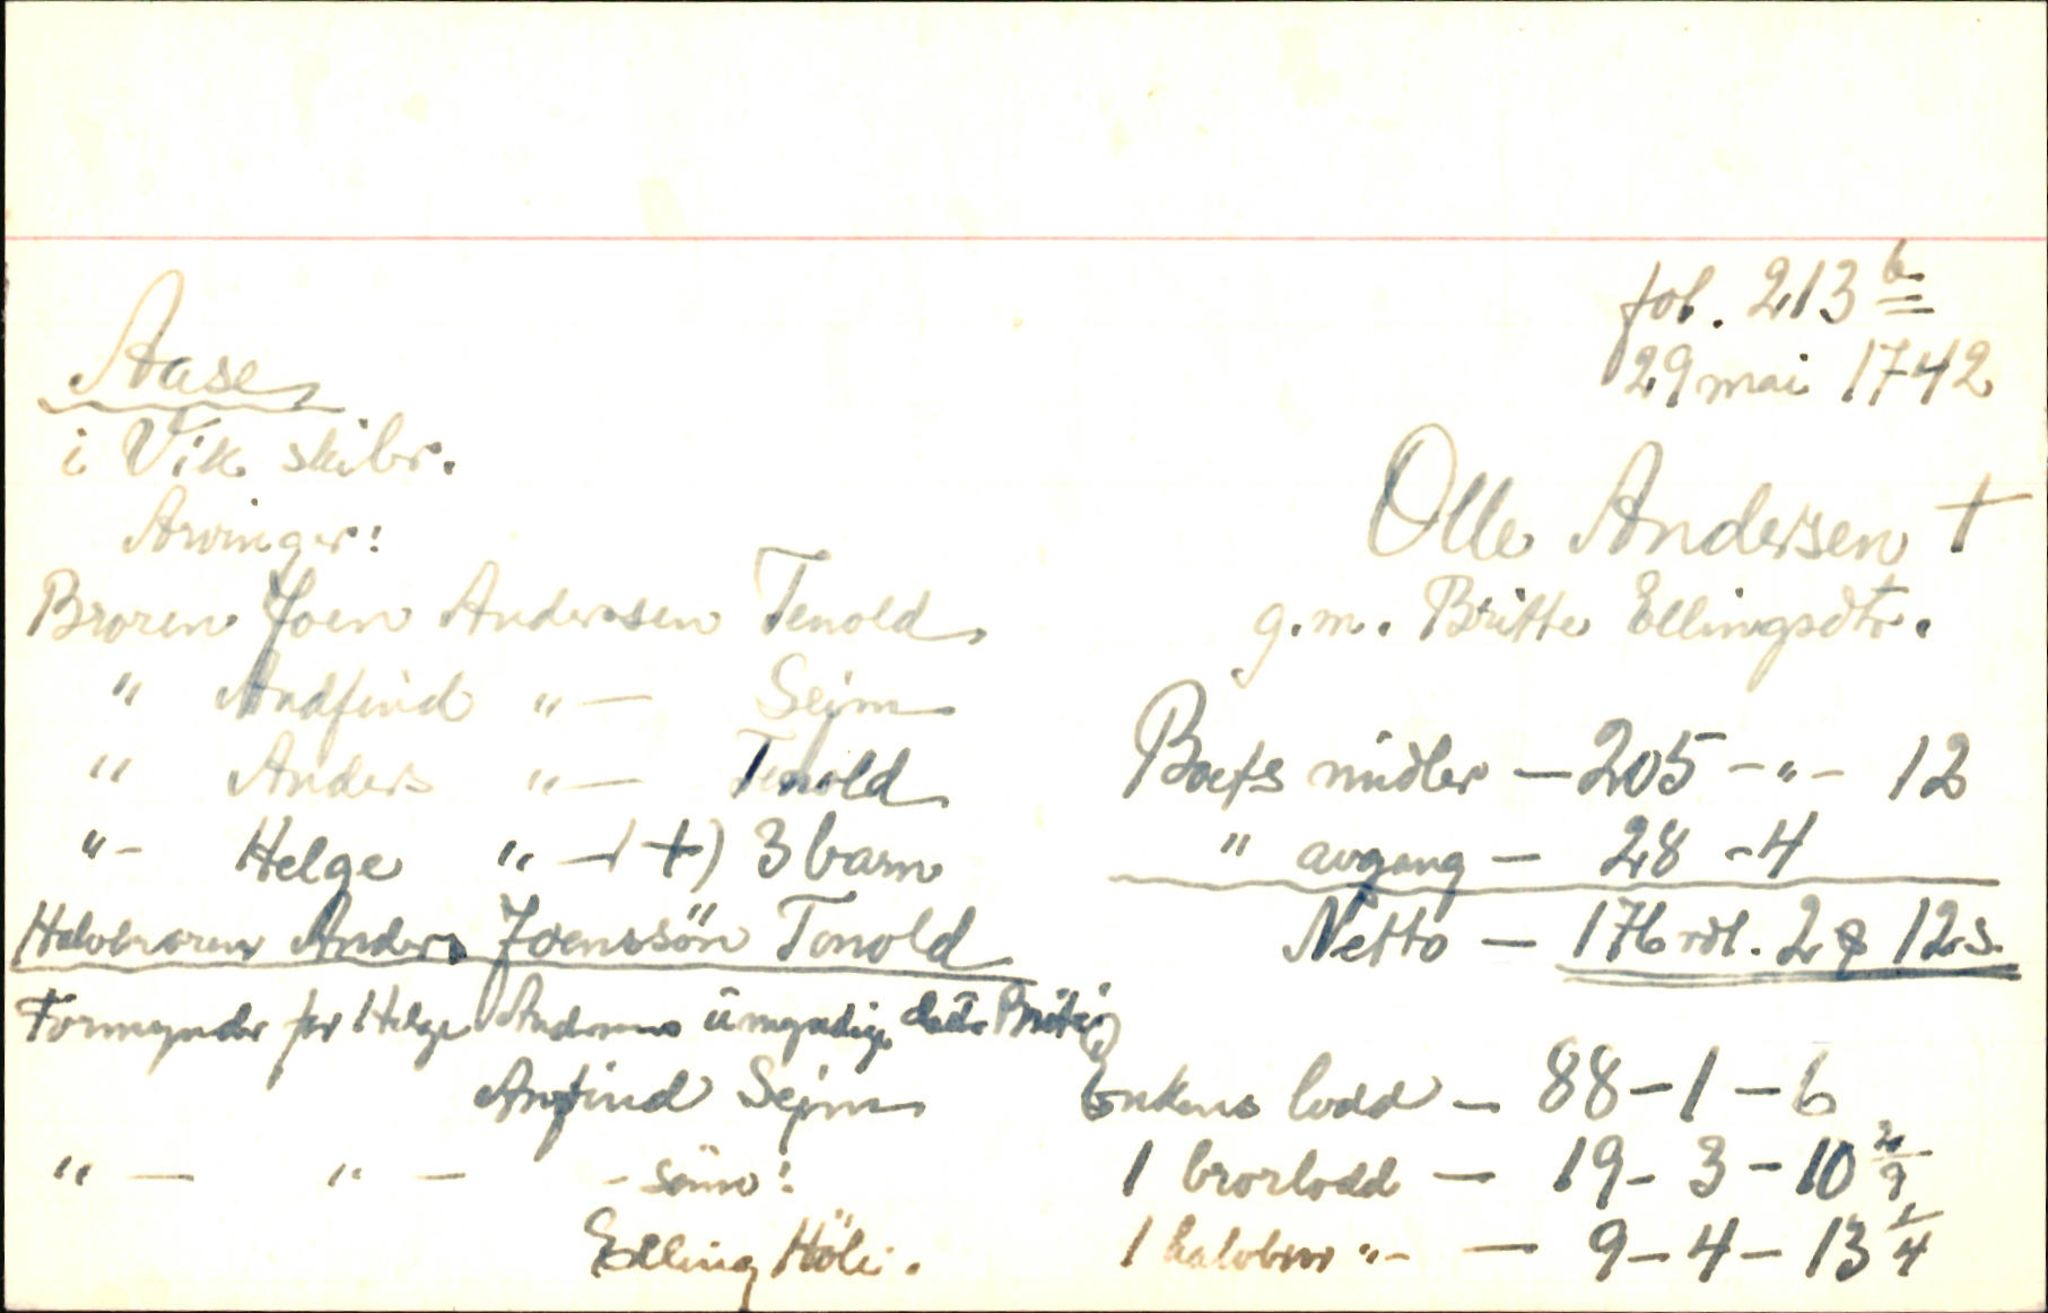 fol. 213 b
29 mai 1742
Aase
i Vik skibr.
Arvinger:
Olle Andersen †
g.m. Britte Ellingsdtr.
Broren Joen Andersen Tenold
" Andfind " — Sejm
" Anders " — Tenold
" - Helge " — (+) 3 barn
Halvbroren Anders Joenssön Tenold
Formynder for Helge Andersens umyndige datr
Anfind Sejm
" — " — - sönn:
Elling Höli.
Boets midler — 205 - " - 12
" avgang — 28 - 4
Netto — 176 rdl. 2 12 s.
Enkens lodd — 88 - 1 - 6
1 brorlodd — 19 - 3 - 10
1 halvbror " - — 9 - 4 - 13 1/4